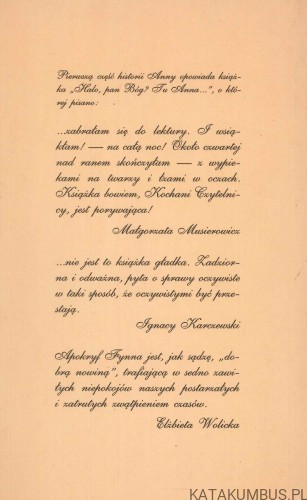 Pierwszą część historii Anny opowiada książ-
ka „Halo, pan Bóg? Tu Anna...”, o któ-
rej pisano:
...zabrałam się do lektury. I wsią-
kłam! — na całą noc! Około czwartej
nad ranem skończyłam — z wypie-
kami na twarzy i łzami w oczach.
Książka bowiem, Kochani Czytelni-
cy, jest porywająca!
Małgorzata Musierowicz
...nie jest to książka gładka. Zadzior-
na i odważna, pyta o sprawy oczywiste
w taki sposób, że oczywistymi być prze-
stają.
Ignacy Karczewski
Apokryf Fynna jest, jak sądzę, „do-
brą nowiną”, trafiającą w sedno zawi-
łych niepokojów naszych postarzałych
i zatrutych zwątpieniem czasów.
Elżbieta Wolicka
KATAKUMBUS.PL